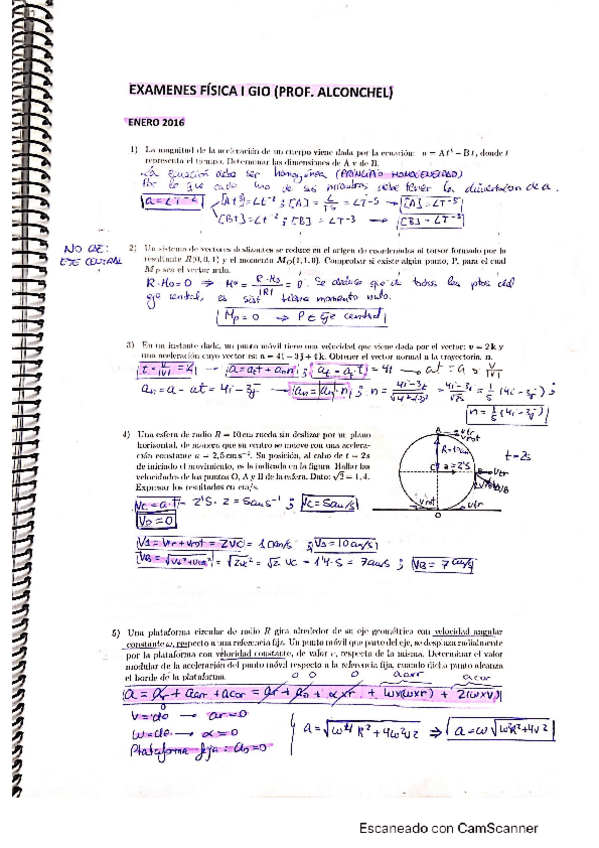 EXAMENES FÍSICA I GIO (PROF. ALCONCHEL)
ENERO 2016
1) La magnitud de la aceleración de un cuerpo viene dada por la ecuación: a = At³ − Bt, donde t
representa el tiempo. Determinar las dimensiones de A y de B.
La ecuación debe ser homogénea (PRINCIPIO HOMOGENEIDAD)
Por lo que cada uno de sus miembros debe tener la dimension de a.
a = LT⁻²
[A] = LT⁻⁵
[B] = LT⁻³
NO QUE:
EJE CENTRAL
2) Un sistema de vectores deslizantes se reduce en el origen de coordenadas al torsor formado por la
resultante R(0, 0, 1) y el momento M_O(1, 1, 0). Comprobar si existe algún punto, P, para el cual
M_P sea el vector nulo.
Se deduce que de todos los ptos del
eje central, es tiene momento nulo.
M_P = 0 → P ∈ Eje central
3) En un instante dado, un punto móvil tiene una velocidad que viene dada por el vector: v = 2k y
una aceleración cuyo vector es: a = 4i − 3j + 4k. Obtener el vector normal a la trayectoria, n.
an = a − at = 4i − 3j
n = 1/5 (4i − 3j)
4) Una esfera de radio R = 10 cm rueda sin deslizar por un plano
horizontal, de manera que su centro se mueve con una acelera-
ción constante a = 2,5 cm s⁻². Su posición, al cabo de t = 2s
de iniciado el movimiento, es la indicada en la figura. Hallar las
velocidades de los puntos O, A y B de la esfera. Dato: √2 = 1,4.
Expresar los resultados en cm/s.
t = 2s
R = 10cm
Vc = a·t = 2'5 · 2 = 5cm s⁻¹ ; Vc = 5cm/s
V0 = 0
VA = Vtr + Vrot = 2VC = 10cm/s ; VA = 10cm/s
= √2 VC = 1'4 · 5 = 7cm/s ; VB = 7 cm/s
5) Una plataforma circular de radio R gira alrededor de su eje geométrico con velocidad angular
constante ω, respecto a una referencia fija. Un punto móvil que parte del eje, se desplaza radialmente
por la plataforma con velocidad constante, de valor v, respecto de la misma. Determinar el valor
modular de la aceleración del punto móvil respecto a la referencia fija, cuando dicho punto alcanza
el borde de la plataforma.
a = ar + aarr + acor = ar + a0 + αxr + ωx(ωxr) + 2(ωxv)
v = cte → ar = 0
ω = cte → α = 0
Plataforma fija: a0 = 0
a = √ω⁴R² + 4ω²v² ⇒ a = ω√ω²R² + 4v²
Escaneado con CamScanner